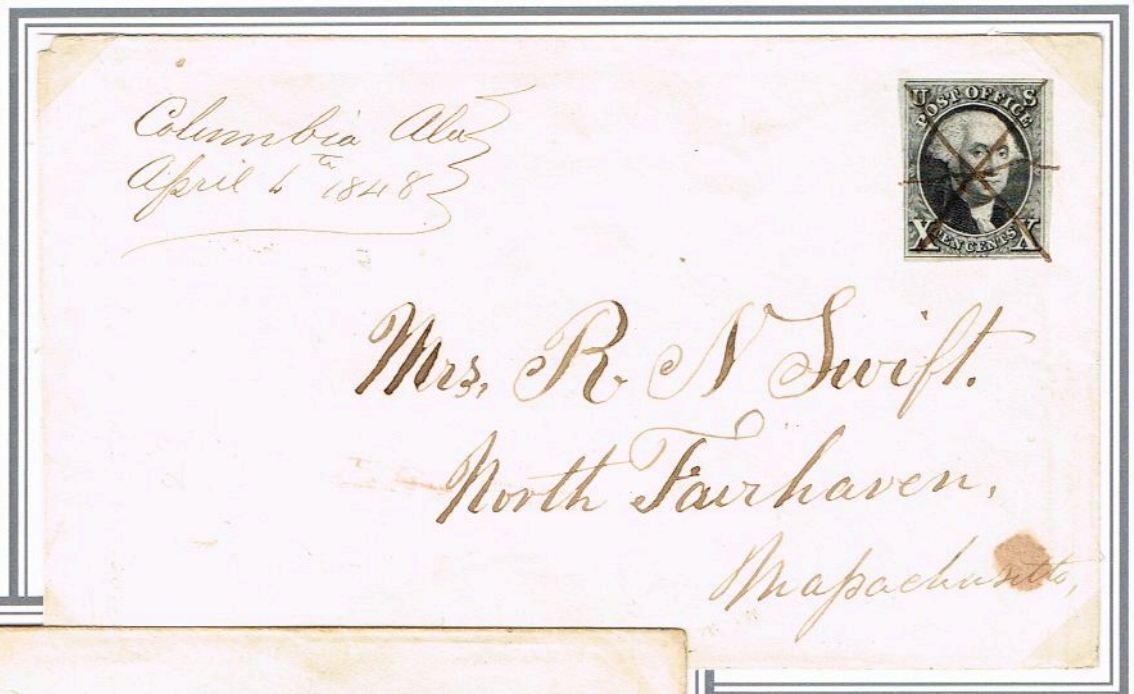 Columbia Ala
April 6th 1848
U S
POST OFFICE
X TEN CENTS X
Mrs, R. N Swift.
North Fairhaven,
Massachusetts,